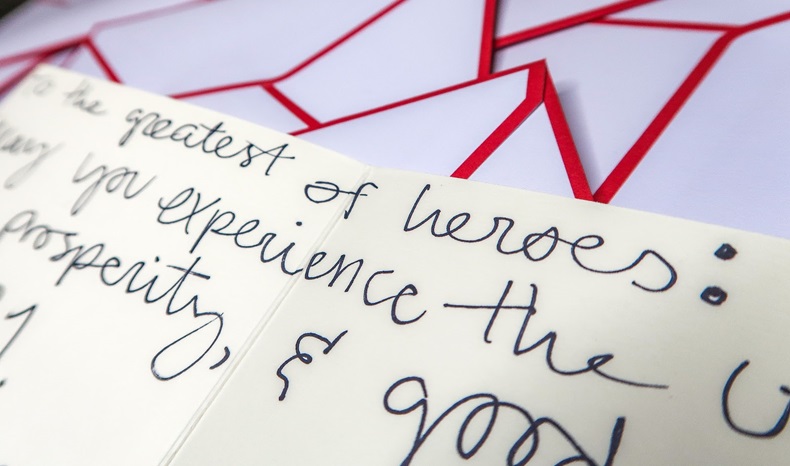 to the greatest of heroes:
May you experience the
prosperity, & good